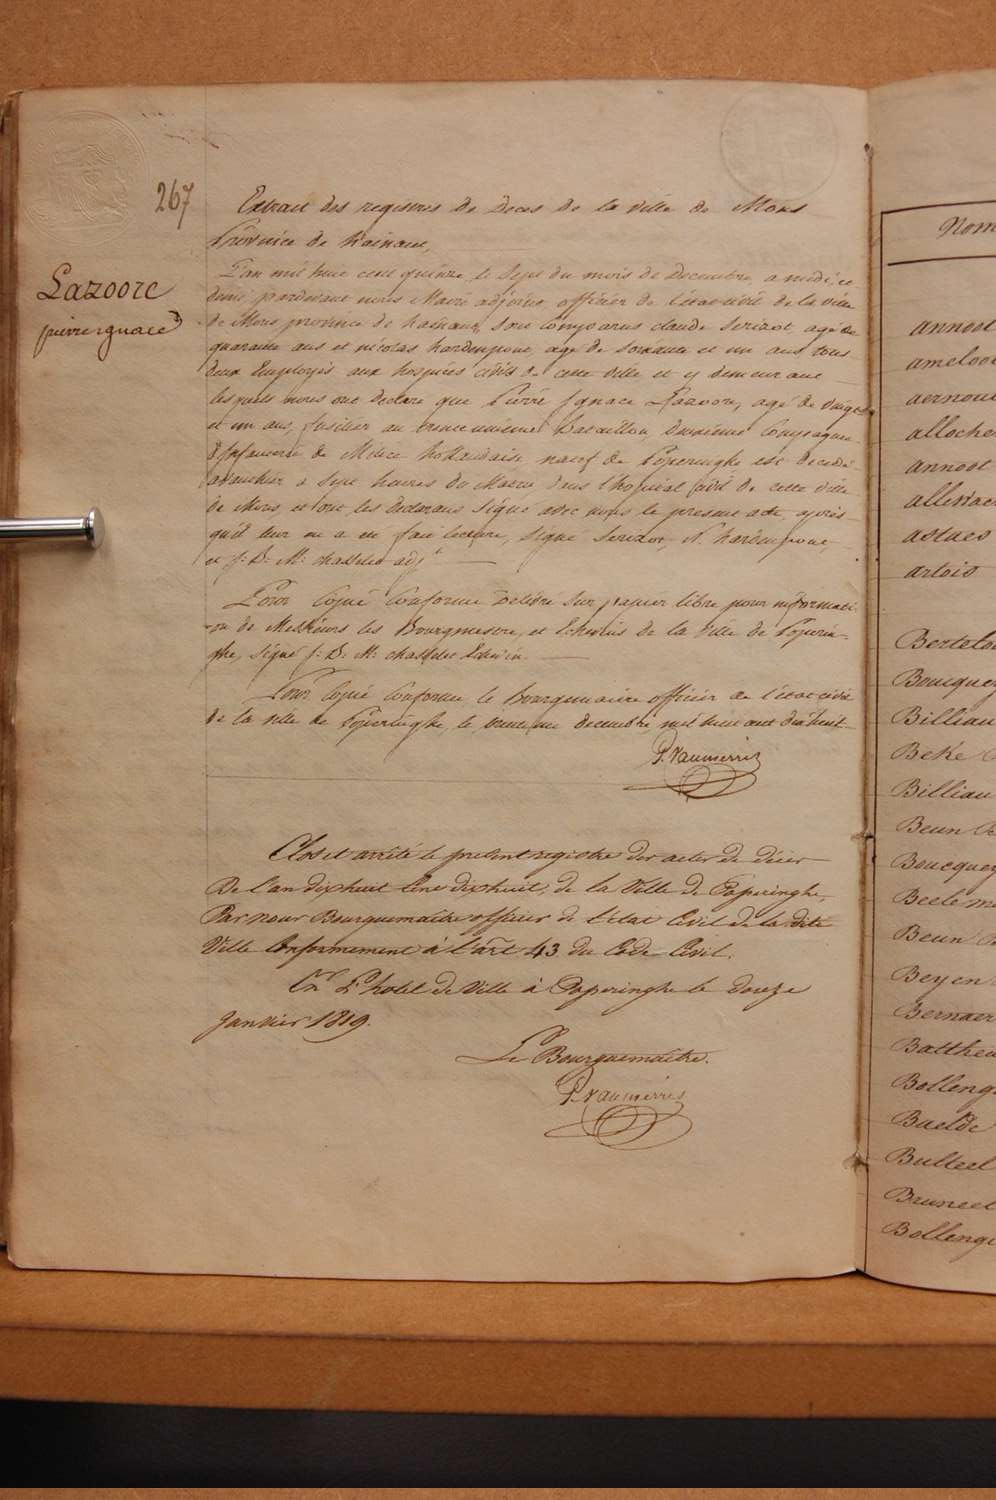 267
Lazoore
pierre ignace
Extrait des registres de Deces de la ville de Mons
Province de hainaut,
L'an mil huit cent quinze, le sept du mois de Decembre, a midi, ce
devis pardevant nous Maire adjoint officier de l'état civil de la ville
de Mons province de hainaut, sont comparus claude Seridot, agé de
quarante ans et nicolas hardenpont, agé de soixante et un ans tous
deux Employés aux hospices civils de cette ville et y demeurant
lesquels nous ont declaré que Pierre Ignace Lazoore, agé de vingt
et un ans, fusilier au trenteunieme Bataillon, deuxieme Compagnie
d'Infanterie de Milice hollandaise natif de Poperinghe est decedé
avanthier a sept heures du Matin dans l'hopital civil de cette ville
de Mons, et ont les declarans signé avec nous le present acte, après
qu'il leur en a eté fait lecture, signé Seridot, N. hardenpont,
et f: D: M: chasselet adjt
Pour Copie Conforme Delivré sur papier libre pour informati-
on de Messieurs les Bourgmestre, et Echevins de la ville de Poperin-
ghe, signé f: D: M: chasselet Echevin.
Pour Copie Conforme, le Bourguemaitre officier de l'état civil
de la ville de Poperinghe, le trente un Decembre mil huit cent dix huit.
P. Vanmerris
Clos et arrêté le présent registre des actes de décès
De l'an dix huit Cent dix huit, de la Ville de Poperinghe,
Par nous Bourguemaître officier de l'état Civil de la dite
Ville Conformement à l'art 43 du Code Civil.
En L'hotel de Ville à Poperinghe le douze
Janvier 1819.
Le Bourguemaître.
P. Vanmerris
Nom
annoot
ameloot
aernout
alloche
annoot
allewae
astaes
artois
Bertelo
Boucquey
Billiau
Beke
Billiau
Beun
Boucquey
Beele
Beun
Beyen
Bernaer
Batthe
Bollenge
Baelde
Bulteel
Bruneel
Bollenge